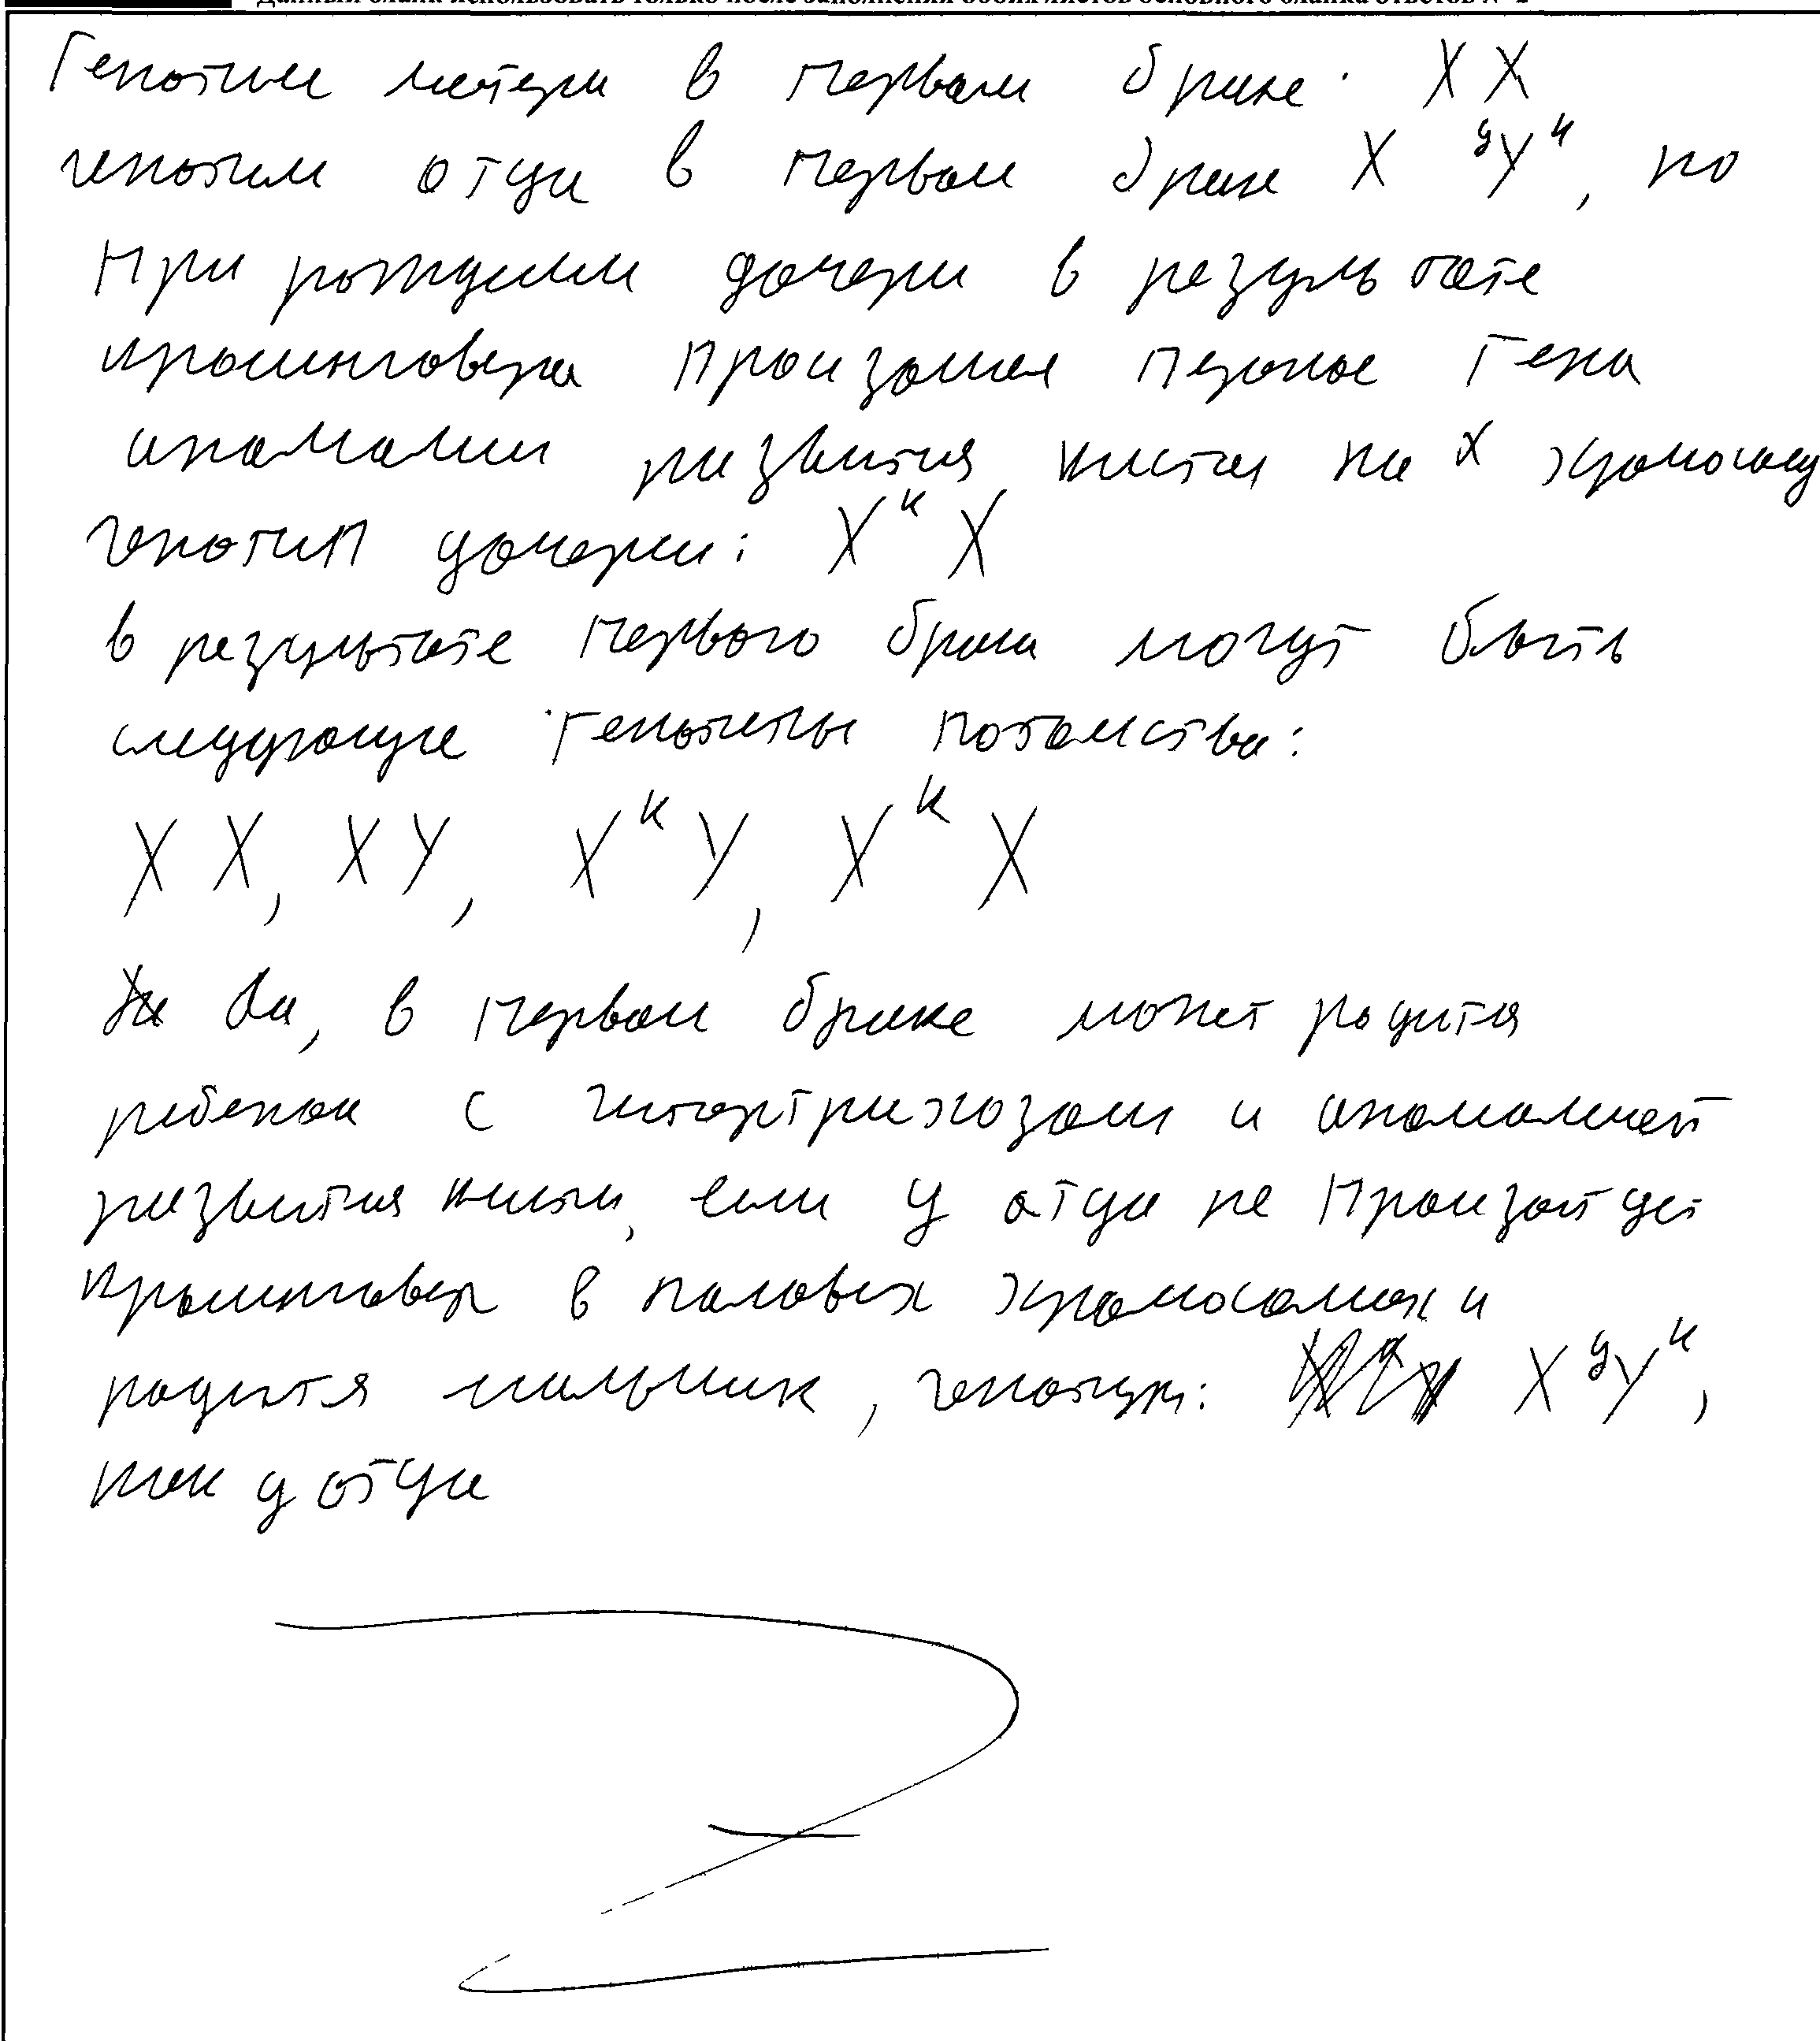 Данный бланк использовать только после заполнения обоих листов основного бланка ответов № 2
Генотип матери в первом браке: X X
генотип отца в первом браке X ᵍYᴷ, но
При рождении дочери в результате
кроссинговера произошел перенос гена
аномалии развития кисти на X хромосому
генотип дочери: Xᴷ X
в результате первого брака могут быть
следующие генотипы потомства:
X X, X Y, Xᴷ Y, Xᴷ X
Да, в первом браке может родится
ребенок с гипертрихозом и аномалией
развития кисти, если у отца не произойдет
кроссинговер в половых хромосомах и
родится мальчик, генотип: X ᵍYᴷ,
как у отца